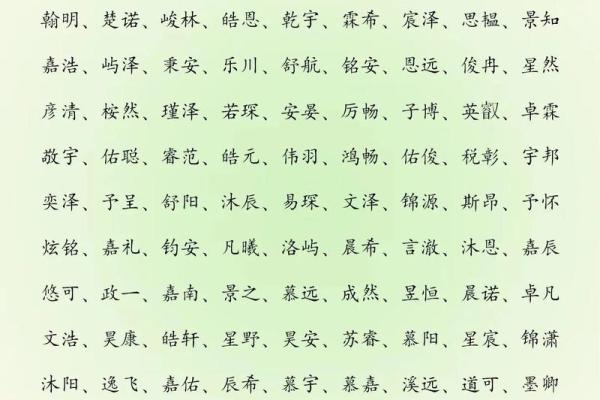 翰明、楚诺、峻林、皓恩、乾宇、霖希、宸泽、思韫、景知
嘉浩、屿泽、秉安、乐川、舒航、铭安、恩远、俊冉、星然
彦清、桉然、瑾泽、若琛、安晏、厉畅、子博、英叡、卓霖
敬宇、佑聪、睿范、皓元、伟羽、鸿畅、佑俊、税彰、宇邦
奕泽、予呈、舒阳、沐辰、易琛、文泽、锦源、斯昂、予怀
炫铭、嘉礼、钧安、凡曦、洛屿、晨希、言澈、沐恩、嘉辰
悠可、政一、嘉南、景之、慕远、成然、昱恒、晨诺、卓凡
文浩、昊康、皓轩、星野、昊安、苏睿、慕阳、星宸、锦潇
沐阳、逸飞、嘉佑、辰希、慕宇、慕嘉、溪远、道可、墨卿